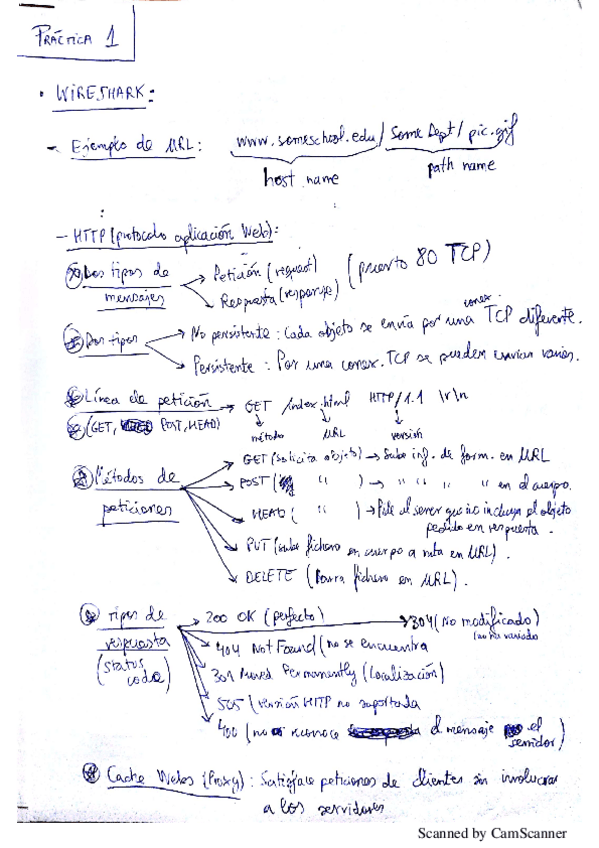 PRÁCTICA 1
• WIRESHARK:
- Ejemplo de URL: www.someschool.edu/SomeDept/pic.gif
host name path name
- HTTP (protocolo aplicación Web):
Dos tipos de mensajes → Petición (request) (puerto 80 TCP)
→ Respuesta (response)
Dos tipos → No persistente: Cada objeto se envía por una conex. TCP diferente.
→ Persistente: Por una conex. TCP se pueden enviar varios.
Línea de petición → GET /index.html HTTP/1.1 \r\n
(GET, POST, HEAD) método URL versión
Métodos de peticiones → GET (solicita objeto) → Sube inf. de form. en URL
→ POST ( " ) → " " " " en el cuerpo.
→ HEAD ( " ) → Pide al server que no incluya el objeto
pedido en respuesta.
→ PUT (sube fichero en cuerpo a ruta en URL).
→ DELETE (borra fichero en URL).
Tipos de respuesta (status code) → 200 OK (perfecto) → 304 (No modificado)
(no ha variado
→ 404 Not Found (no se encuentra
→ 301 Moved Permanently (localización)
→ 505 (versión HTTP no soportada
→ 400 (no reconoce el mensaje el servidor)
Cache Webs (Proxy): Satisface peticiones de clientes sin involucrar
a los servidores
Scanned by CamScanner